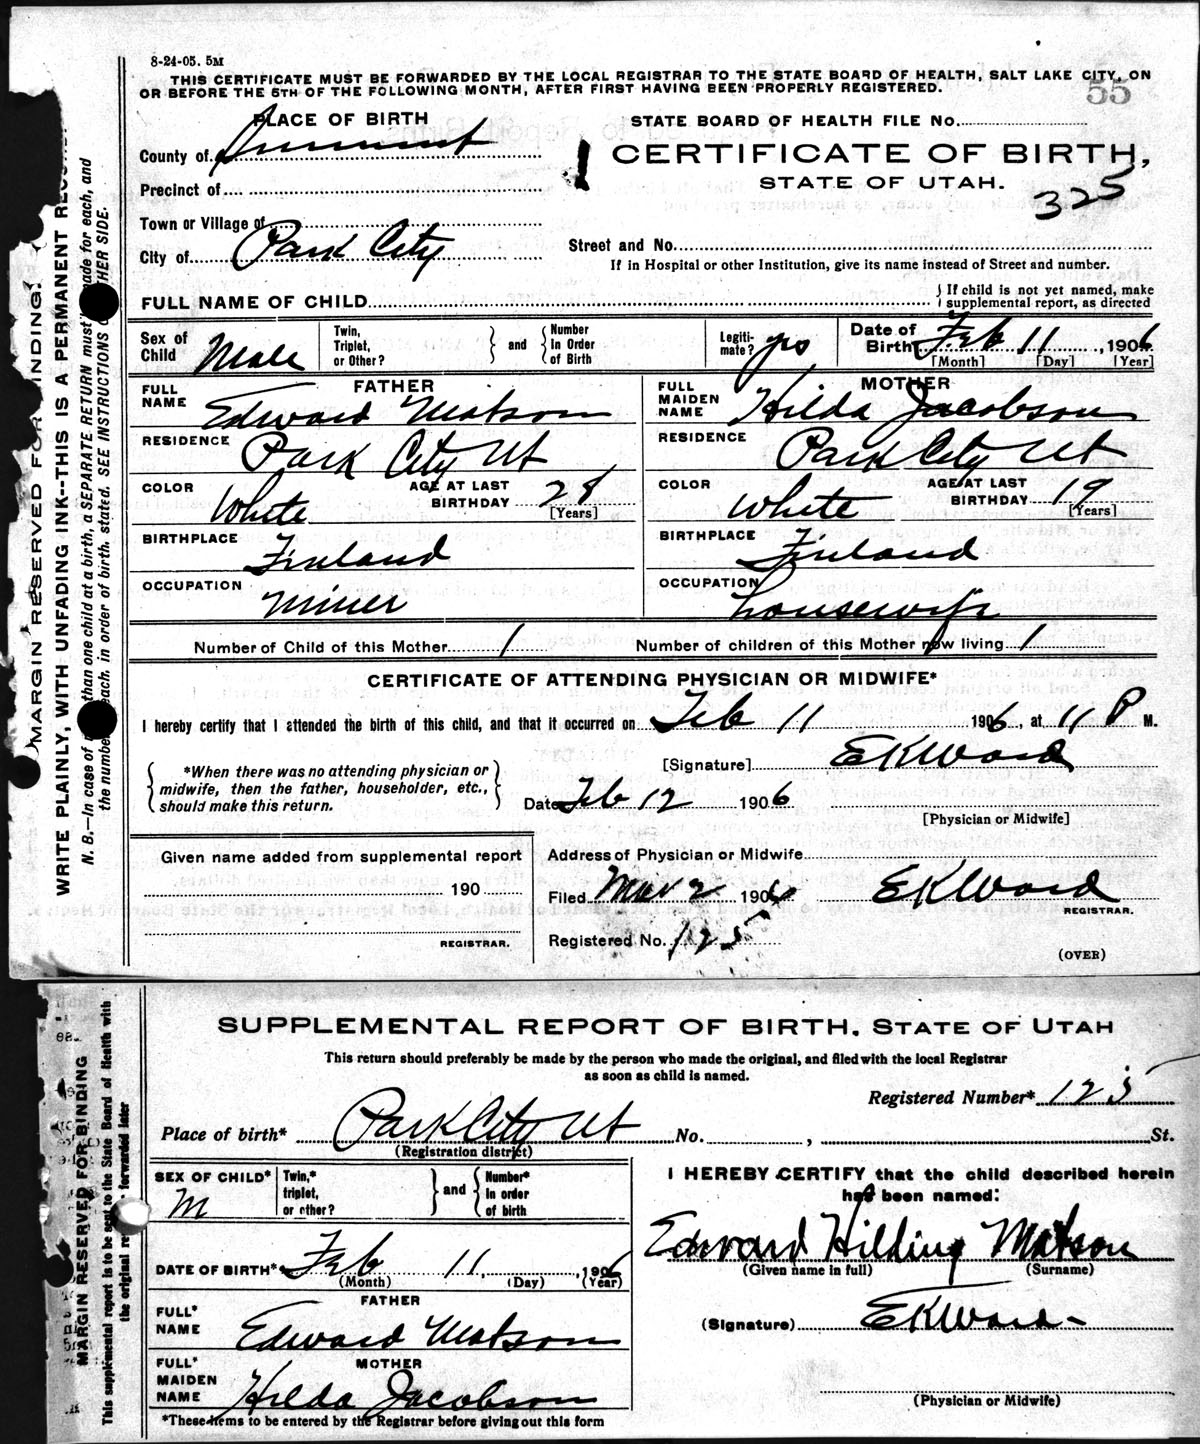 8-24-05. 5M
THIS CERTIFICATE MUST BE FORWARDED BY THE LOCAL REGISTRAR TO THE STATE BOARD OF HEALTH, SALT LAKE CITY, ON
OR BEFORE THE 5TH OF THE FOLLOWING MONTH, AFTER FIRST HAVING BEEN PROPERLY REGISTERED.
55
PLACE OF BIRTH
STATE BOARD OF HEALTH FILE No.
County of Summit
1 CERTIFICATE OF BIRTH,
STATE OF UTAH.
325
Precinct of
Town or Village of
City of Park City
Street and No.
If in Hospital or other Institution, give its name instead of Street and number.
FULL NAME OF CHILD
} If child is not yet named, make
supplemental report, as directed
Sex of Child Male
Twin, Triplet, or Other?
} and { Number In Order of Birth
Legitimate? yes
Date of Birth Feb 11, 1906
[Month] [Day] [Year]
FATHER
FULL NAME Edward Matson
RESIDENCE Park City Ut
COLOR White
AGE AT LAST BIRTHDAY 28
[Years]
BIRTHPLACE Finland
OCCUPATION Miner
MOTHER
FULL MAIDEN NAME Hilda Jacobson
RESIDENCE Park City Ut
COLOR White
AGE AT LAST BIRTHDAY 19
[Years]
BIRTHPLACE Finland
OCCUPATION housewife
Number of Child of this Mother 1
Number of children of this Mother now living 1
CERTIFICATE OF ATTENDING PHYSICIAN OR MIDWIFE*
I hereby certify that I attended the birth of this child, and that it occurred on Feb 11 1906, at 11 P M.
{ *When there was no attending physician or
midwife, then the father, householder, etc.,
should make this return. }
[Signature] EKWard
Date Feb 12 1906
[Physician or Midwife]
Given name added from supplemental report
190
REGISTRAR.
Address of Physician or Midwife
Filed Mar 2 1906 EKWard
REGISTRAR.
Registered No. 125
(OVER)
MARGIN RESERVED FOR BINDING.
WRITE PLAINLY, WITH UNFADING INK--THIS IS A PERMANENT
N. B.—In case of than one child at a birth, a SEPARATE RETURN must made for each, and
the number each, in order of birth, stated. SEE INSTRUCTIONS OTHER SIDE.
SUPPLEMENTAL REPORT OF BIRTH, STATE OF UTAH
This return should preferably be made by the person who made the original, and filed with the local Registrar
as soon as child is named.
Registered Number* 125
Place of birth* Park City Ut No. , St.
(Registration district)
SEX OF CHILD* M
Twin,* triplet, or other?
} and { Number* In order of birth
DATE OF BIRTH* Feb 11, 1906
(Month) (Day) (Year)
FATHER
FULL* NAME Edward Matson
MOTHER
FULL* MAIDEN NAME Hilda Jacobson
*These items to be entered by the Registrar before giving out this form
I HEREBY CERTIFY that the child described herein
has been named:
Edward Hilding Matson
(Given name in full) (Surname)
(Signature) EKWard
(Physician or Midwife)
MARGIN RESERVED FOR BINDING
This supplemental report is to be sent to the State Board of Health with
the original forwarded later